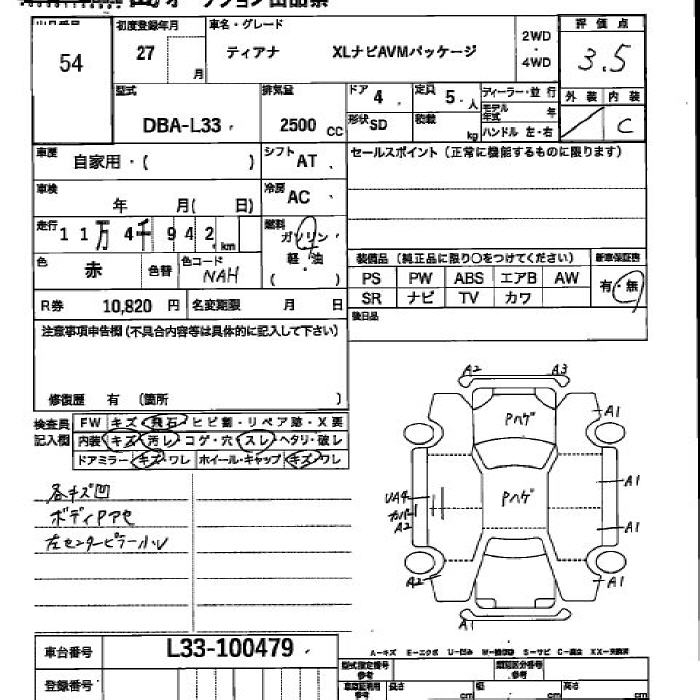 54
初度登録年月
27
月
車名・グレード
ティアナ XLナビAVMパッケージ
2WD
・
4WD
評価点
3.5
外装 内装
C
型式
DBA-L33
排気量
2500 CC
ドア 4
定員 5. 人
形状 SD
積載 kg
ディーラー・並行
モデル年式 年
ハンドル 左・右
車歴
自家用・( )
シフト AT
セールスポイント(正常に機能するものに限ります)
車検
年 月( 日)
冷房 AC
走行
11万4千942 km
燃料
ガソリン
軽・油
( )
色
赤
色替
色コード
NAH
装備品(純正品に限り○をつけてください)
新車保証書
PS PW ABS エアB AW
SR ナビ TV カワ
有・無
R券 10,820 円
名変期限 月 日
後日品
注意事項申告欄(不具合内容等は具体的に記入して下さい)
修復歴 有 (箇所 )
検査員
記入欄
FW キズ・飛石・ヒビ割・リペア跡・X要
内装 キズ・汚レ・コゲ・穴・スレ・ヘタリ・破レ
ドアミラー キズ・ワレ ホイール・キャップ キズ・ワレ
各キズ凹
ボディPアセ
左センターピラー小U
A2 A3
Pハゲ
A1
Pハゲ
A1
UA4
カバー1
A2
A1
A2
A1
A1
車台番号
L33-100479
A-キズ E-エクボ U-凹み W-補修跡 S-サビ C-腐食 XX-交換済
登録番号
型式指定番号
参考
類別区分番号
参考
車庫証明用
参考
長さ cm
幅 cm
高さ cm